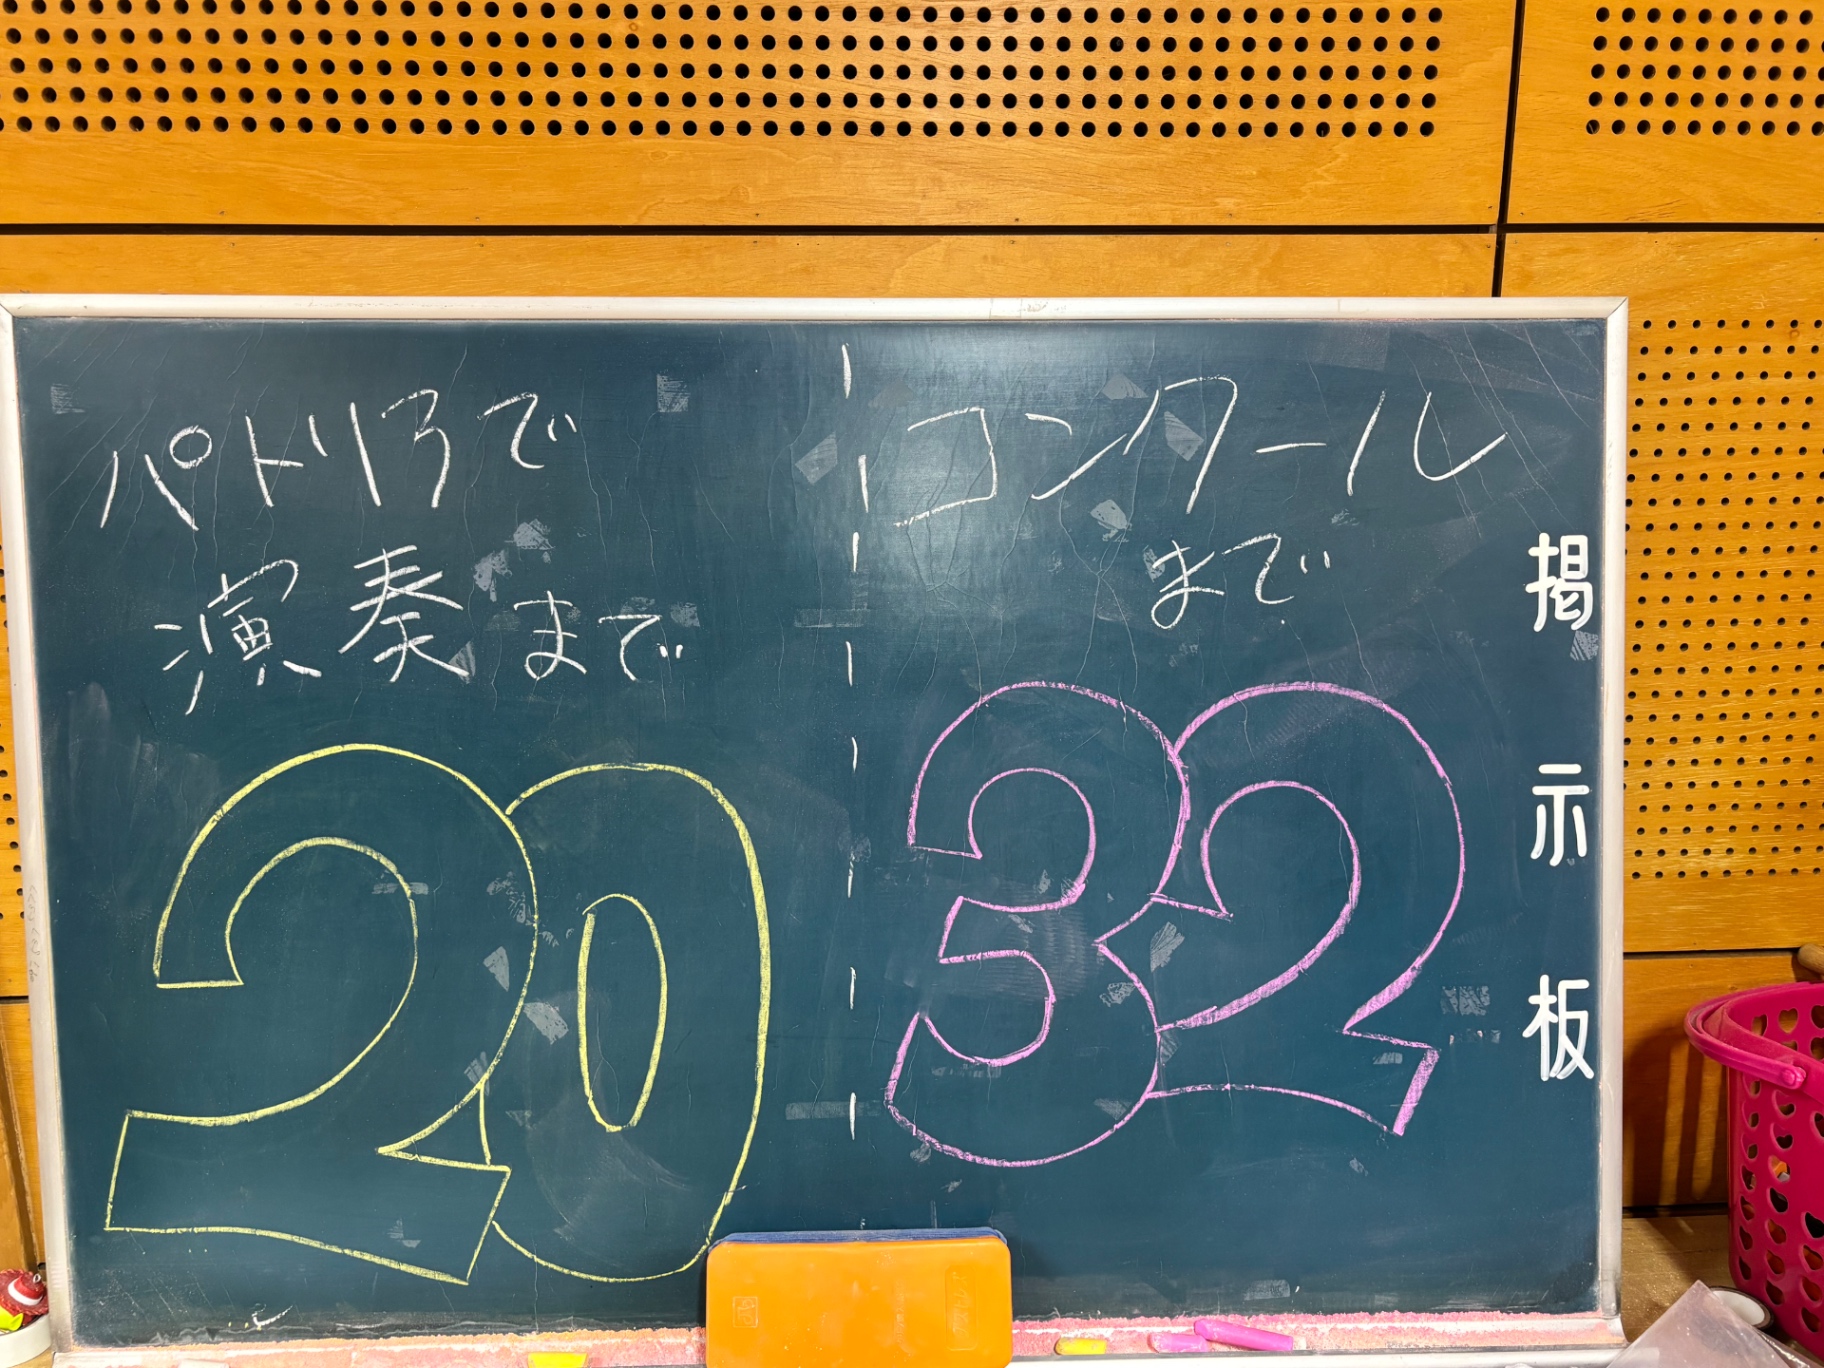 パトリアで
演奏まで
20
コンクール
まで
32
掲示板